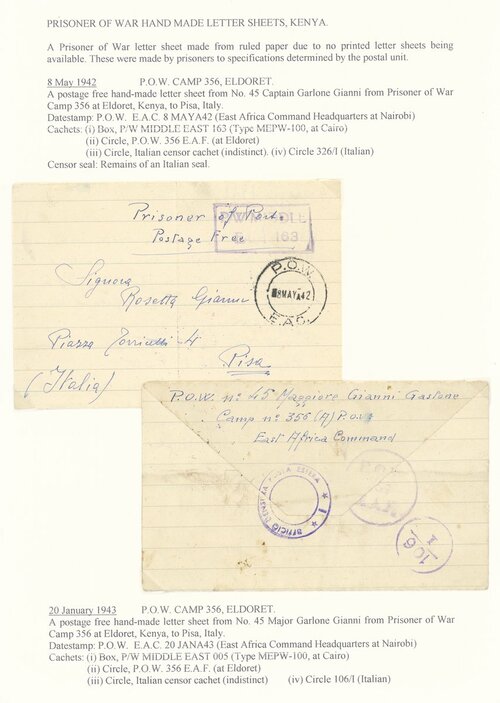 PRISONER OF WAR HAND MADE LETTER SHEETS, KENYA.
A Prisoner of War letter sheet made from ruled paper due to no printed letter sheets being
available. These were made by prisoners to specifications determined by the postal unit.
8 May 1942 P.O.W. CAMP 356, ELDORET.
A postage free hand-made letter sheet from No. 45 Captain Garlone Gianni from Prisoner of War
Camp 356 at Eldoret, Kenya, to Pisa, Italy.
Datestamp: P.O.W. E.A.C. 8 MAYA42 (East Africa Command Headquarters at Nairobi)
Cachets: (i) Box, P/W MIDDLE EAST 163 (Type MEPW-100, at Cairo)
(ii) Circle, P.O.W. 356 E.A.F. (at Eldoret)
(iii) Circle, Italian censor cachet (indistinct). (iv) Circle 326/I (Italian)
Censor seal: Remains of an Italian seal.
Prisoner of
Postage Free
P/W MIDDLE
163
P.O.W.
8MAYA42
E.A.C.
Signora
Rosetta Gianni
Piazza Torricelli 4
Pisa
(Italia)
P.O.W. n° 45 Maggiore Gianni Gastone
Camp n° 356 (A) P.O.W.
East Africa Command
UFFICIO CENSURA POSTA ESTERA
106
1
20 January 1943 P.O.W. CAMP 356, ELDORET.
A postage free hand-made letter sheet from No. 45 Major Garlone Gianni from Prisoner of War
Camp 356 at Eldoret, Kenya, to Pisa, Italy.
Datestamp: P.O.W. E.A.C. 20 JANA43 (East Africa Command Headquarters at Nairobi)
Cachets: (i) Box, P/W MIDDLE EAST 005 (Type MEPW-100, at Cairo)
(ii) Circle, P.O.W. 356 E.A.F. (at Eldoret)
(iii) Circle, Italian censor cachet (indistinct) (iv) Circle 106/I (Italian)